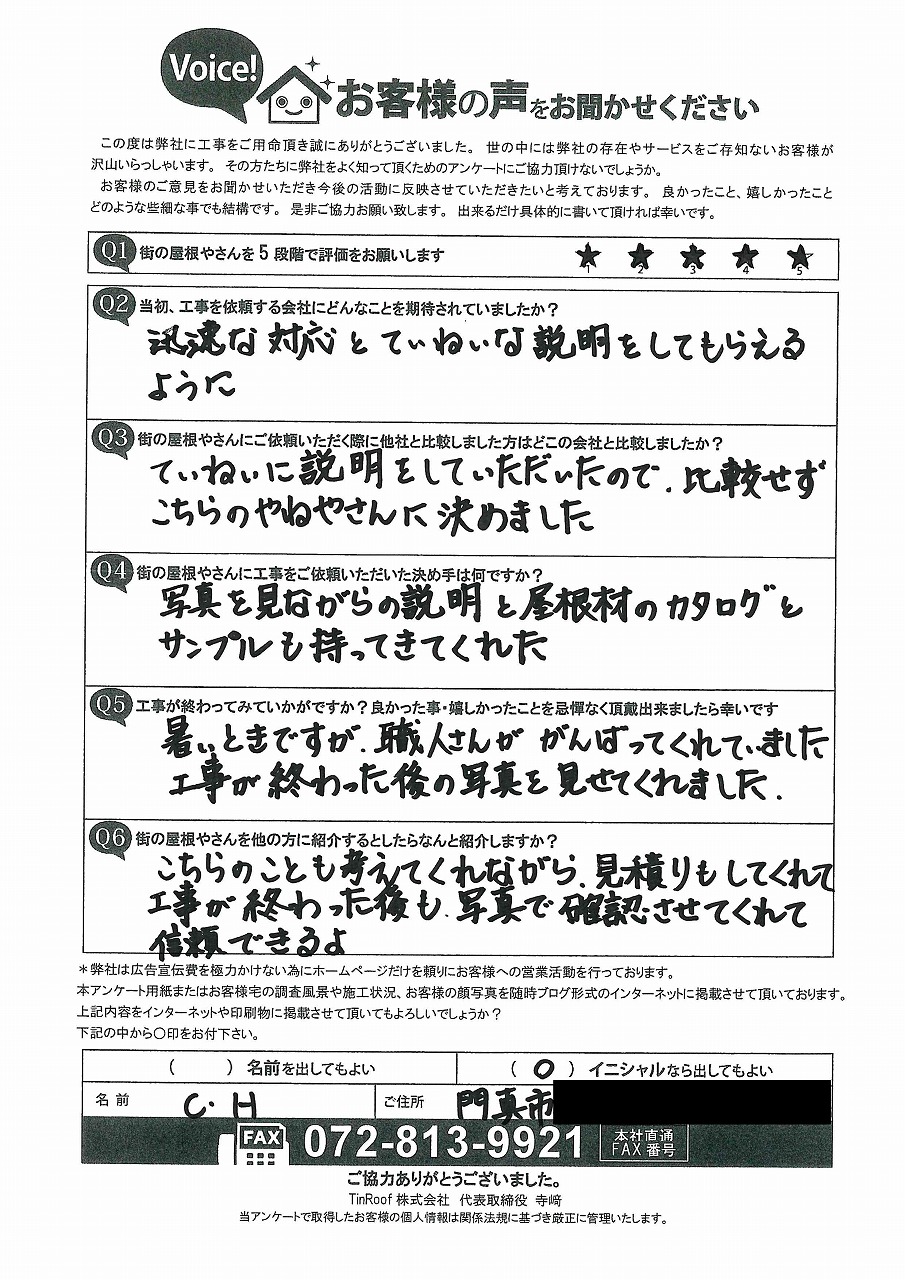 Voice!
お客様の声をお聞かせください
この度は弊社に工事をご用命頂き誠にありがとうございました。 世の中には弊社の存在やサービスをご存知ないお客様が
沢山いらっしゃいます。 その方たちに弊社をよく知って頂くためのアンケートにご協力頂けないでしょうか。
お客様のご意見をお聞かせいただき今後の活動に反映させていただきたいと考えております。 良かったこと、嬉しかったこと
どのような些細な事でも結構です。 是非ご協力お願い致します。 出来るだけ具体的に書いて頂ければ幸いです。
Q1 街の屋根やさんを5段階で評価をお願いします ★ ★ ★ ★ ★
1 2 3 4 5
Q2 当初、工事を依頼する会社にどんなことを期待されていましたか?
迅速な対応とていねいな説明をしてもらえる
ように
Q3 街の屋根やさんにご依頼いただく際に他社と比較しました方はどこの会社と比較しましたか?
ていねいに説明をしていただいたので、比較せず
こちらのやねやさんに決めました
Q4 街の屋根やさんに工事をご依頼いただいた決め手は何ですか?
写真を見ながらの説明と屋根材のカタログと
サンプルも持ってきてくれた
Q5 工事が終わってみていかがですか?良かった事・嬉しかったことを忌憚なく頂戴出来ましたら幸いです
暑いときですが、職人さんが がんばってくれていました
工事が終わった後の写真を見せてくれました.
Q6 街の屋根やさんを他の方に紹介するとしたらなんと紹介しますか?
こちらのことも考えてくれながら、見積りもしてくれて
工事が終わった後も、写真で確認させてくれて
信頼できるよ
*弊社は広告宣伝費を極力かけない為にホームページだけを頼りにお客様への営業活動を行っております。
本アンケート用紙またはお客様宅の調査風景や施工状況、お客様の顔写真を随時ブログ形式のインターネットに掲載させて頂いております。
上記内容をインターネットや印刷物に掲載させて頂いてもよろしいでしょうか?
下記の中から〇印をお付下さい。
( ) 名前を出してもよい ( O ) イニシャルなら出してもよい
名前 C・H ご住所 門真市
FAX 072-813-9921 本社直通
FAX番号
ご協力ありがとうございました。
TinRoof 株式会社 代表取締役 寺﨑
当アンケートで取得したお客様の個人情報は関係法規に基づき厳正に管理いたします。